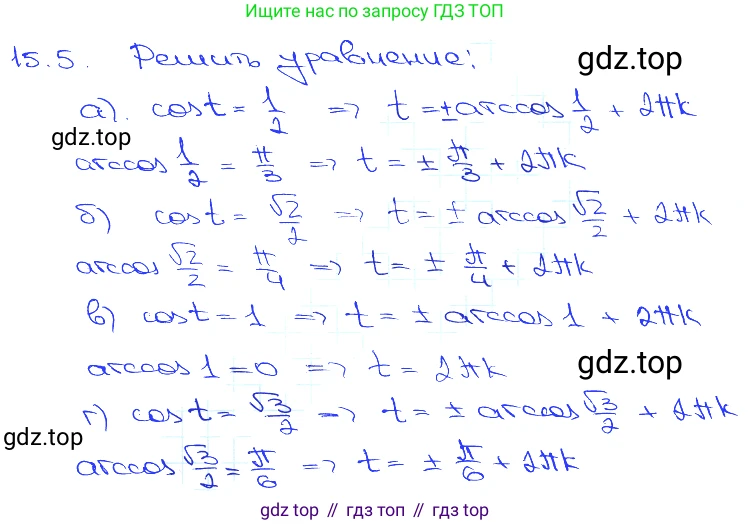 Ищите нас по запросу ГДЗ ТОП
15.5. Решить уравнение:
gdz.top
а). cos t = 1/2 => t = ± arccos 1/2 + 2πk
gdz.top
arccos 1/2 = π/3 => t = ± π/3 + 2πk
б) cos t = √2/2 => t = ± arccos √2/2 + 2πk
arccos √2/2 = π/4 => t = ± π/4 + 2πk
в) cos t = 1 => t = ± arccos 1 + 2πk
arccos 1 = 0 => t = 2πk
gdz.top
г) cos t = √3/2 => t = ± arccos √3/2 + 2πk
gdz.top
arccos √3/2 = π/6 => t = ± π/6 + 2πk
gdz top // гдз топ // гдз.топ // gdz.top